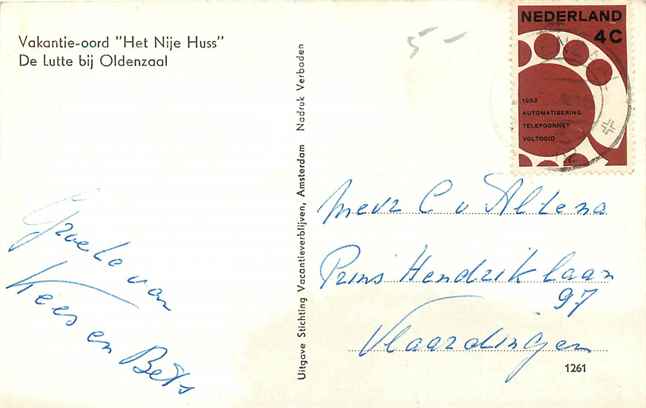 Vakantie-oord "Het Nije Huss"
De Lutte bij Oldenzaal
5-
NEDERLAND
4C
1962
AUTOMATISERING
TELEFOONNET
VOLTOOID
Uitgave Stichting Vacantieverblijven, Amsterdam Nadruk Verboden
Groeten van
Kees en Bets
Mevr C v Altena
Prins Hendriklaan
97
Vlaardingen
1261